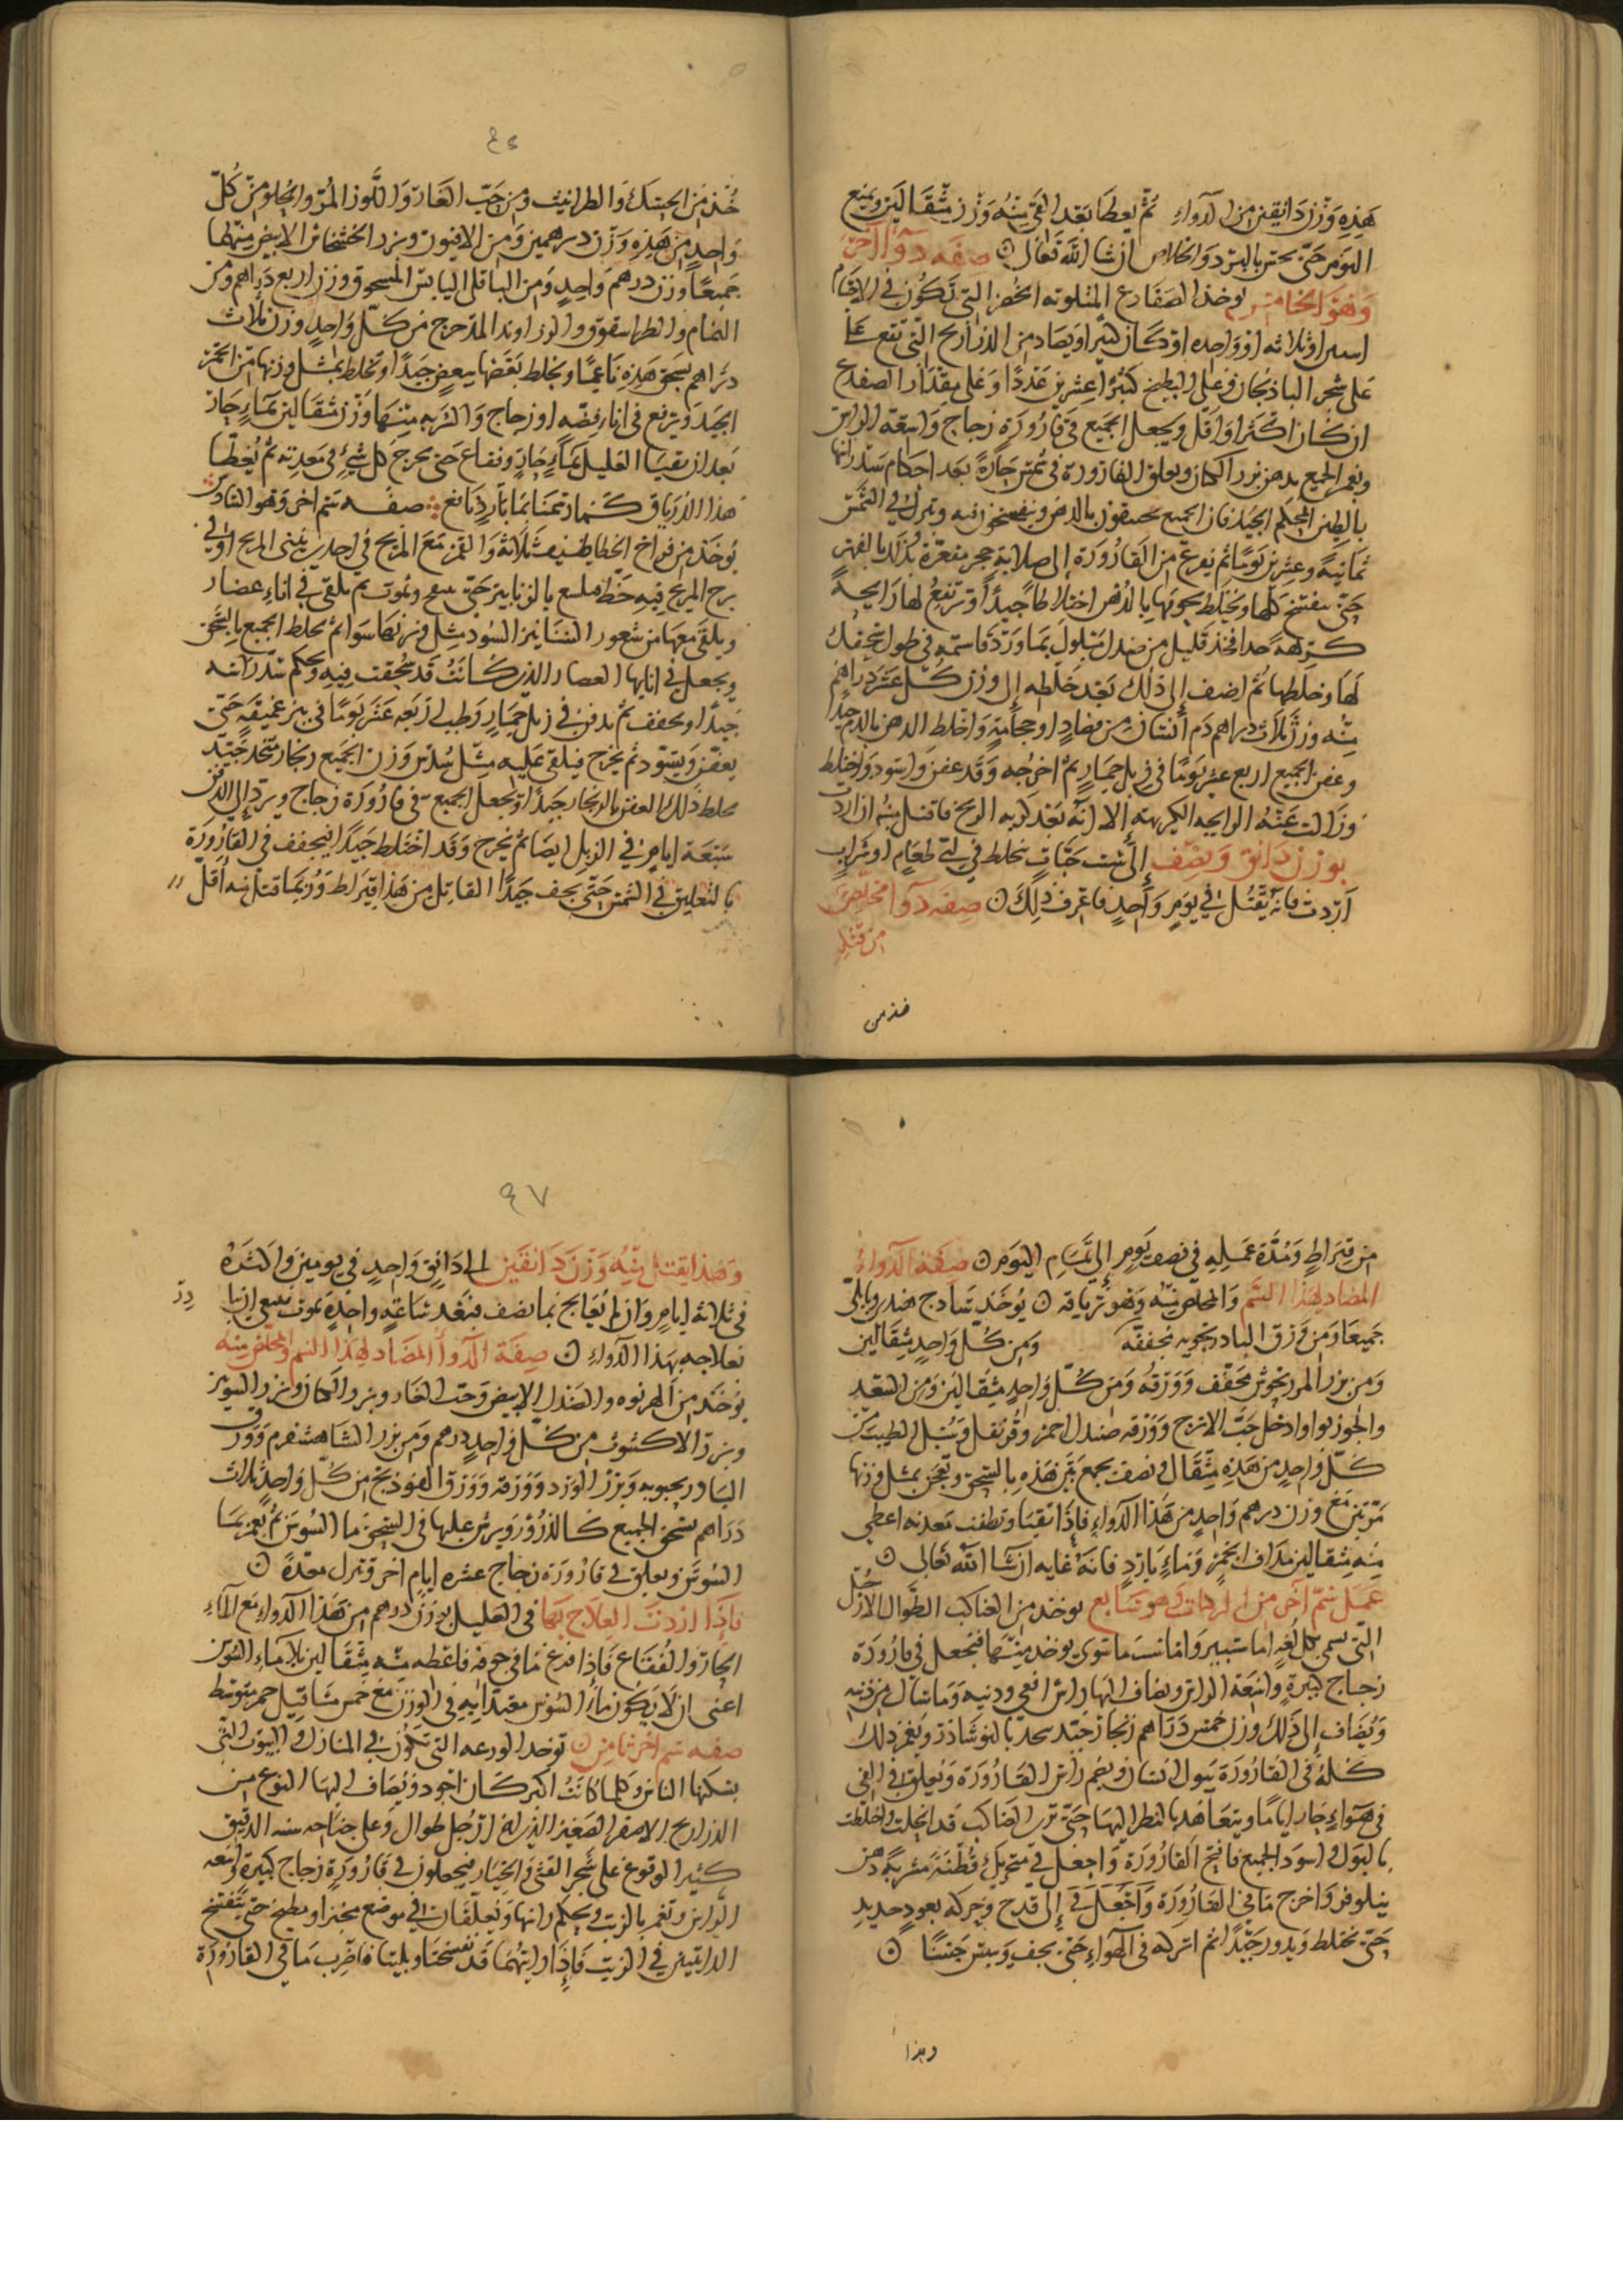 هذه وزن دانقين من الدواء ثم يعطا بعد القي منه وزن مثقالين ويمنع
النوم حتى يحس بالبرد والخلاص ان شا الله تعالى صفه دوآ اخر
وهو الخامس يوخذ الضفادع المتلونه الخضر التي تكون في الاجام
او ثلاثه او واحده او كان كبيرا ويصاد من الذراريح التي تقع
على شجر الباذنجان وعلى البطيخ كثيرا عشرين عددا وعلى مقدار الضفدع
ان كان اكثر او اقل ويجعل الجميع في قارورة زجاج واسعة الراس
ويغمر الجميع بدهن بزر الكتان ويعلق القارورة في شمس حارة بعد احكام سد راسها
بالطين المحكم الجيد فان الجميع بالدهن فيه ويترك في الشمس
ثمانية وعشرين يوما ثم يفرغ من القارورة الى صلاية حجر مقعرة بالفهر
حتى كلها ويختلط بالدهن اختلاطا جيدا وترتفع لها رايحه
كريهة جدا فخذ قليل من صندل مبلول بما ورد فاستمه في طول سحقك
لها وخلطها ثم اضف الى ذلك بعد خلطه الى وزن كل عشر دراهم
منه وزن ثلاث دراهم دم انسان من فصاد او حجامة واخلط الدهن بالدم جيدا
وعفن الجميع اربع عشر يوما في زبل حمار ثم اخرجه وقد عفن واسود واختلط
وزالت عنه الرايحه الكريهه الا انه بعد كريه الريح فاقتل منه ان اردت
بوزن دانق ونصف الى ست حبات تخلط في اي طعام او شراب
اردت فانه يقتل في يوم واحد فاعرف ذلك صفه دوآ مخلص
من قتله
خذ من
خذ من الحسك والطرانيث ومن حب الغار واللوز المر والحلو من كل
واحد من هذه وزن درهمين ومن الافيون وبزر الخشخاش الابيض منهما
جميعا وزن درهم واحد ومن الباقلى اليابس المسحوق وزن اربع دراهم ومن
النمام والطراسقوق والزراوند المدحرج من كل واحد وزن ثلاث
دراهم يسحق هذه ناعما ويخلط بعضها ببعض جيدا وتخلط بمثل وزنها من الخمر
الجيد ويرفع في انا فضه او زجاج والشربه منها وزن مثقالين بماء حار
بعد ان يتقيا العليل بماء حار وفقاع حتى يخرج كل شيء في معدته ثم يعطا
هذا الدرياق صفه سم اخر وهو السادس
يوخذ من فراخ الخطاطيف ثلاثة والقمر مع المريخ في احد بيتي المريخ او في
برج المريخ فيه حظ بالزنابير حتى وتموت ثم يلقى في اناء غضار
ويلقى معها من شعور السنانير السود مثل وزنها سوا ثم يخلط الجميع بالسحق
ويجعل في انايها الغضار الذي كانت قد سحقت فيه ويحكم سد راسه
جيدا ويجفف ثم يدفن في زبل حمار رطب اربعه عشر يوما في بير عميقه حتى
يعفن ويسود ثم يخرج فيلقى عليه مثل سدس وزن الجميع زنجار متخد جيد
يخلط ذلك العفن بالزنجار جيدا ويجعل الجميع في قارورة زجاج ويرد الى الدفن
سبعة ايام في الزبل ايضا ثم يخرج وقد اختلط جيدا فيجفف في القارورة
بالتعليق في الشمس حتى يجف جيدا القاتل من هذا قيراط وربما قتل منه اقل
من قيراط ومدة عمله في نصف يوم الى تمام اليوم صفة الدواء
المضاد لهذا السم والمخلص منه وهو ترياقه يوخذ سادج هندي
جميعا ومن ورق البادرنجويه مجففه ومن كل واحد مثقالين
ومن بزر المرزنجوش مجفف وورقه ومن كل واحد مثقالين ومن السعد
والجوزبوا وداخل حب الاترج وورقه صندل احمر وقرنفل وسنبل الطيب من
كل واحد من هذه مثقال ونصف يجمع بين هذه بالسحق وتعجن بمثل وزنها
وزن درهم واحد من هذا الدواء فاذا تقيا وتنظفت معدته اعطي
منه مثقالين مداف بخمر وماء بارد فانه غايه ان شا الله تعالى
عمل سم اخر من وهو سابع يوخذ من العناكب الطوال الارجل
التي تسمى بكل لغه يوخذ منها فتجعل في قارورة
زجاج كبيرة واسعة الراس ويضاف اليها راس افعى ودنبه وما سال من دنبه
ويضاف الى ذلك وزن خمس دراهم زنجار جيد بالنوشاذر ويغمر ذلك
كله في القارورة ببول انسان ويضم راس القارورة ويعلق في الفي
في هواء حار اياما ويتعاهد بالنظر اليها حتى ترى العناكب قد انحلت واختلطت
بالبول واسود الجميع فافتح القارورة واجعل في منخريك قطنة مشربة دهن
نيلوفر واخرج ما في القارورة واجعله الى قدح وحركه بعود حديد
حتى يختلط ويدور جيدا ثم اتركه في الهواء حتى يجف وييبس حسنا
وهذا
٩٧
وهذا يقتل منه وزن دانقين الى دانق واحد في يومين واكثره
في ثلاثة ايام وان لم يعالج بما نصف فبعد ساعة واحدة يموت
فعلاجه بهذا الدواء صفة الدوا المضاد لهذا السم والمخلص منه
يوخذ من الهرنوه والصندل الابيض وحب الغار وبزر الكتان وبزر السوسن
وبزر الاكشوث من كل واحد درهم ومن بزر الشاهسفرم وورق
البادرنجبويه وبزر الورد وورقه وورق الفودنج من كل واحد ثلاث
دراهم يسحق الجميع كالذرور ويرش عليها في السحق ما السوسن ثم يغمر بما
السوسن ويعلق في قارورة زجاج عشره ايام اخر وتترك معدة
فاذا اردت العلاج بها في العليل بوزن درهم من هذا الدواء مع الماء
الحار والفقاع فاذا فرغ ما في جوفه فاعطه منه مثقالين بلا ماء السوسن
اعني ان لا يكون ماء السوسن معتدا به في الوزن مع خمس مثاقيل خمر متوسط
صفه سم اخر ثامن توخذ الوزغه التي تكون في المنازل والبيوت التي
يسكنها الناس وكلما كانت اكبر كان اجود ويضاف اليها النوع من
الذراريح الاصفر الصغير الذي له ارجل طوال وعلى جناحه
كثير الوقوع على شجر القثى والخيار فيجعلون في قارورة زجاج كبيرة واسعه
الراس وتغمر بالزيت ويحكم راسها ويعلقان في موضع مخبز او مطبخ حتى يتفتح
الدابتين في الزيت فاذا رايتهما قد تفسختا وبليتا فاضرب ما في القارورة